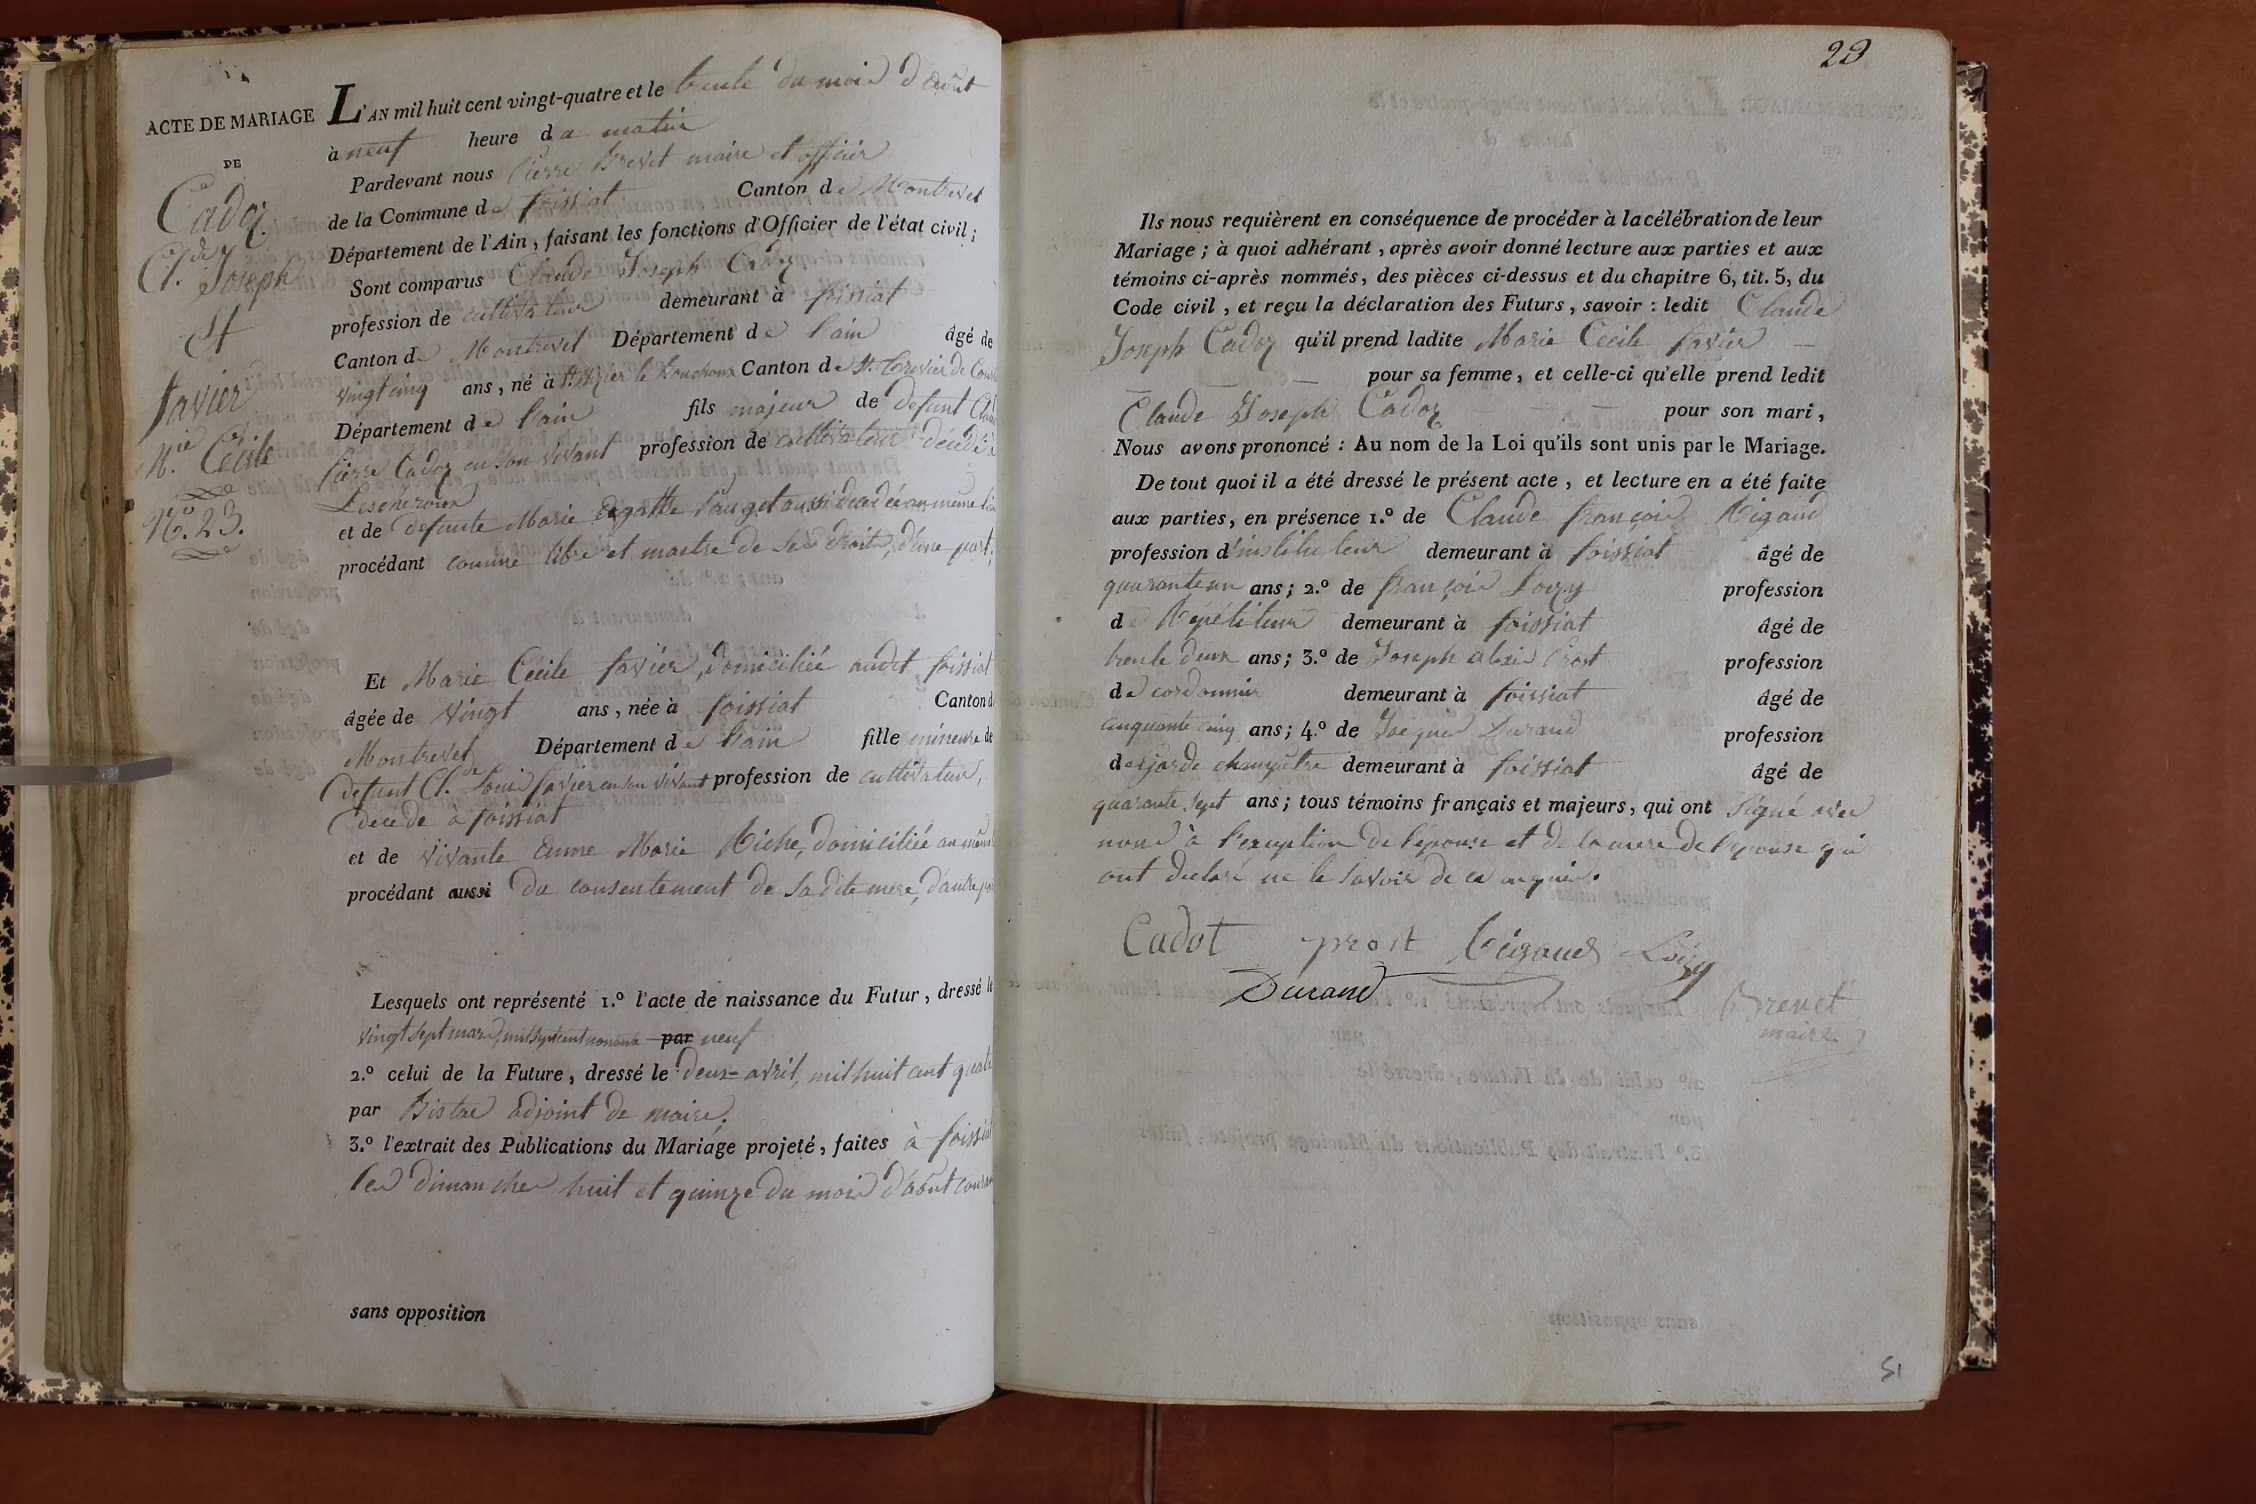 ACTE DE MARIAGE
DE
Cadoz
Cl.de Joseph
Et
favier
M.ie Cécile
N.o 23.
L'AN mil huit cent vingt-quatre et le trente du mois d'août
à neuf heure du matin
Pardevant nous Pierre Brevet maire et officier
de la Commune de foissiat Canton de Montrevel
Département de l'Ain, faisant les fonctions d'Officier de l'état civil;
Sont comparus Claude Joseph Cadoz
profession de cultivateur demeurant à foissiat
Canton de Montrevel Département de l'ain âgé de
vingt cinq ans, né à St. Nizier le Bouchoux Canton de St. Trivier de
Département de l'ain fils majeur de defunt
pierre Cadoz en son vivant profession de cultivateur décédé à
Lescheroux
et de defunte Marie Agathe Pauget aussi décédée au même
procédant comme libre et maitre de ses droits, d'une part,
Et Marie Cécile favier, domiciliée audit foissiat
âgée de vingt ans, née à foissiat Canton de
Montrevel Département de l'ain fille mineure de
defunt Cl.de Louis favier en son vivant profession de cultivateur,
décédé à foissiat
et de vivante Anne Marie Riche, domiciliée au même
procédant aussi du consentement de sa dite mère, d'autre
Lesquels ont représenté 1.º l'acte de naissance du Futur, dressé le
vingt sept mars, mil sept cent nonante par neuf
2.º celui de la Future, dressé le deux avril, mil huit cent quatre
par Bistac adjoint de maire.
3.º l'extrait des Publications du Mariage projeté, faites à foissiat
les dimanches huit et quinze du mois d'août courant
sans opposition
23
Ils nous requièrent en conséquence de procéder à la célébration de leur
Mariage; à quoi adhérant, après avoir donné lecture aux parties et aux
témoins ci-après nommés, des pièces ci-dessus et du chapitre 6, tit. 5, du
Code civil, et reçu la déclaration des Futurs, savoir: ledit Claude
Joseph Cadoz qu'il prend ladite Marie Cecile favier
pour sa femme, et celle-ci qu'elle prend ledit
Claude Joseph Cadoz pour son mari,
Nous avons prononcé: Au nom de la Loi qu'ils sont unis par le Mariage.
De tout quoi il a été dressé le présent acte, et lecture en a été faite
aux parties, en présence 1.º de Claude françois Rigaud
profession d'instituteur demeurant à foissiat âgé de
quarante un ans; 2.º de françois Loizy profession
de Répétiteur demeurant à foissiat âgé de
trente deux ans; 3.º de Joseph alexis Prost profession
de cordonnier demeurant à foissiat âgé de
cinquante cinq ans; 4.º de Jacques Durand profession
de garde champêtre demeurant à foissiat âgé de
quarante sept ans; tous témoins français et majeurs, qui ont signé avec
nous à l'exeption de l'épouse et de la mere de l'epouse qui
ont declaré ne le savoir de ce enquis.
Cadot prost Rigaud Loizy
Durand
Brevet
maire
51